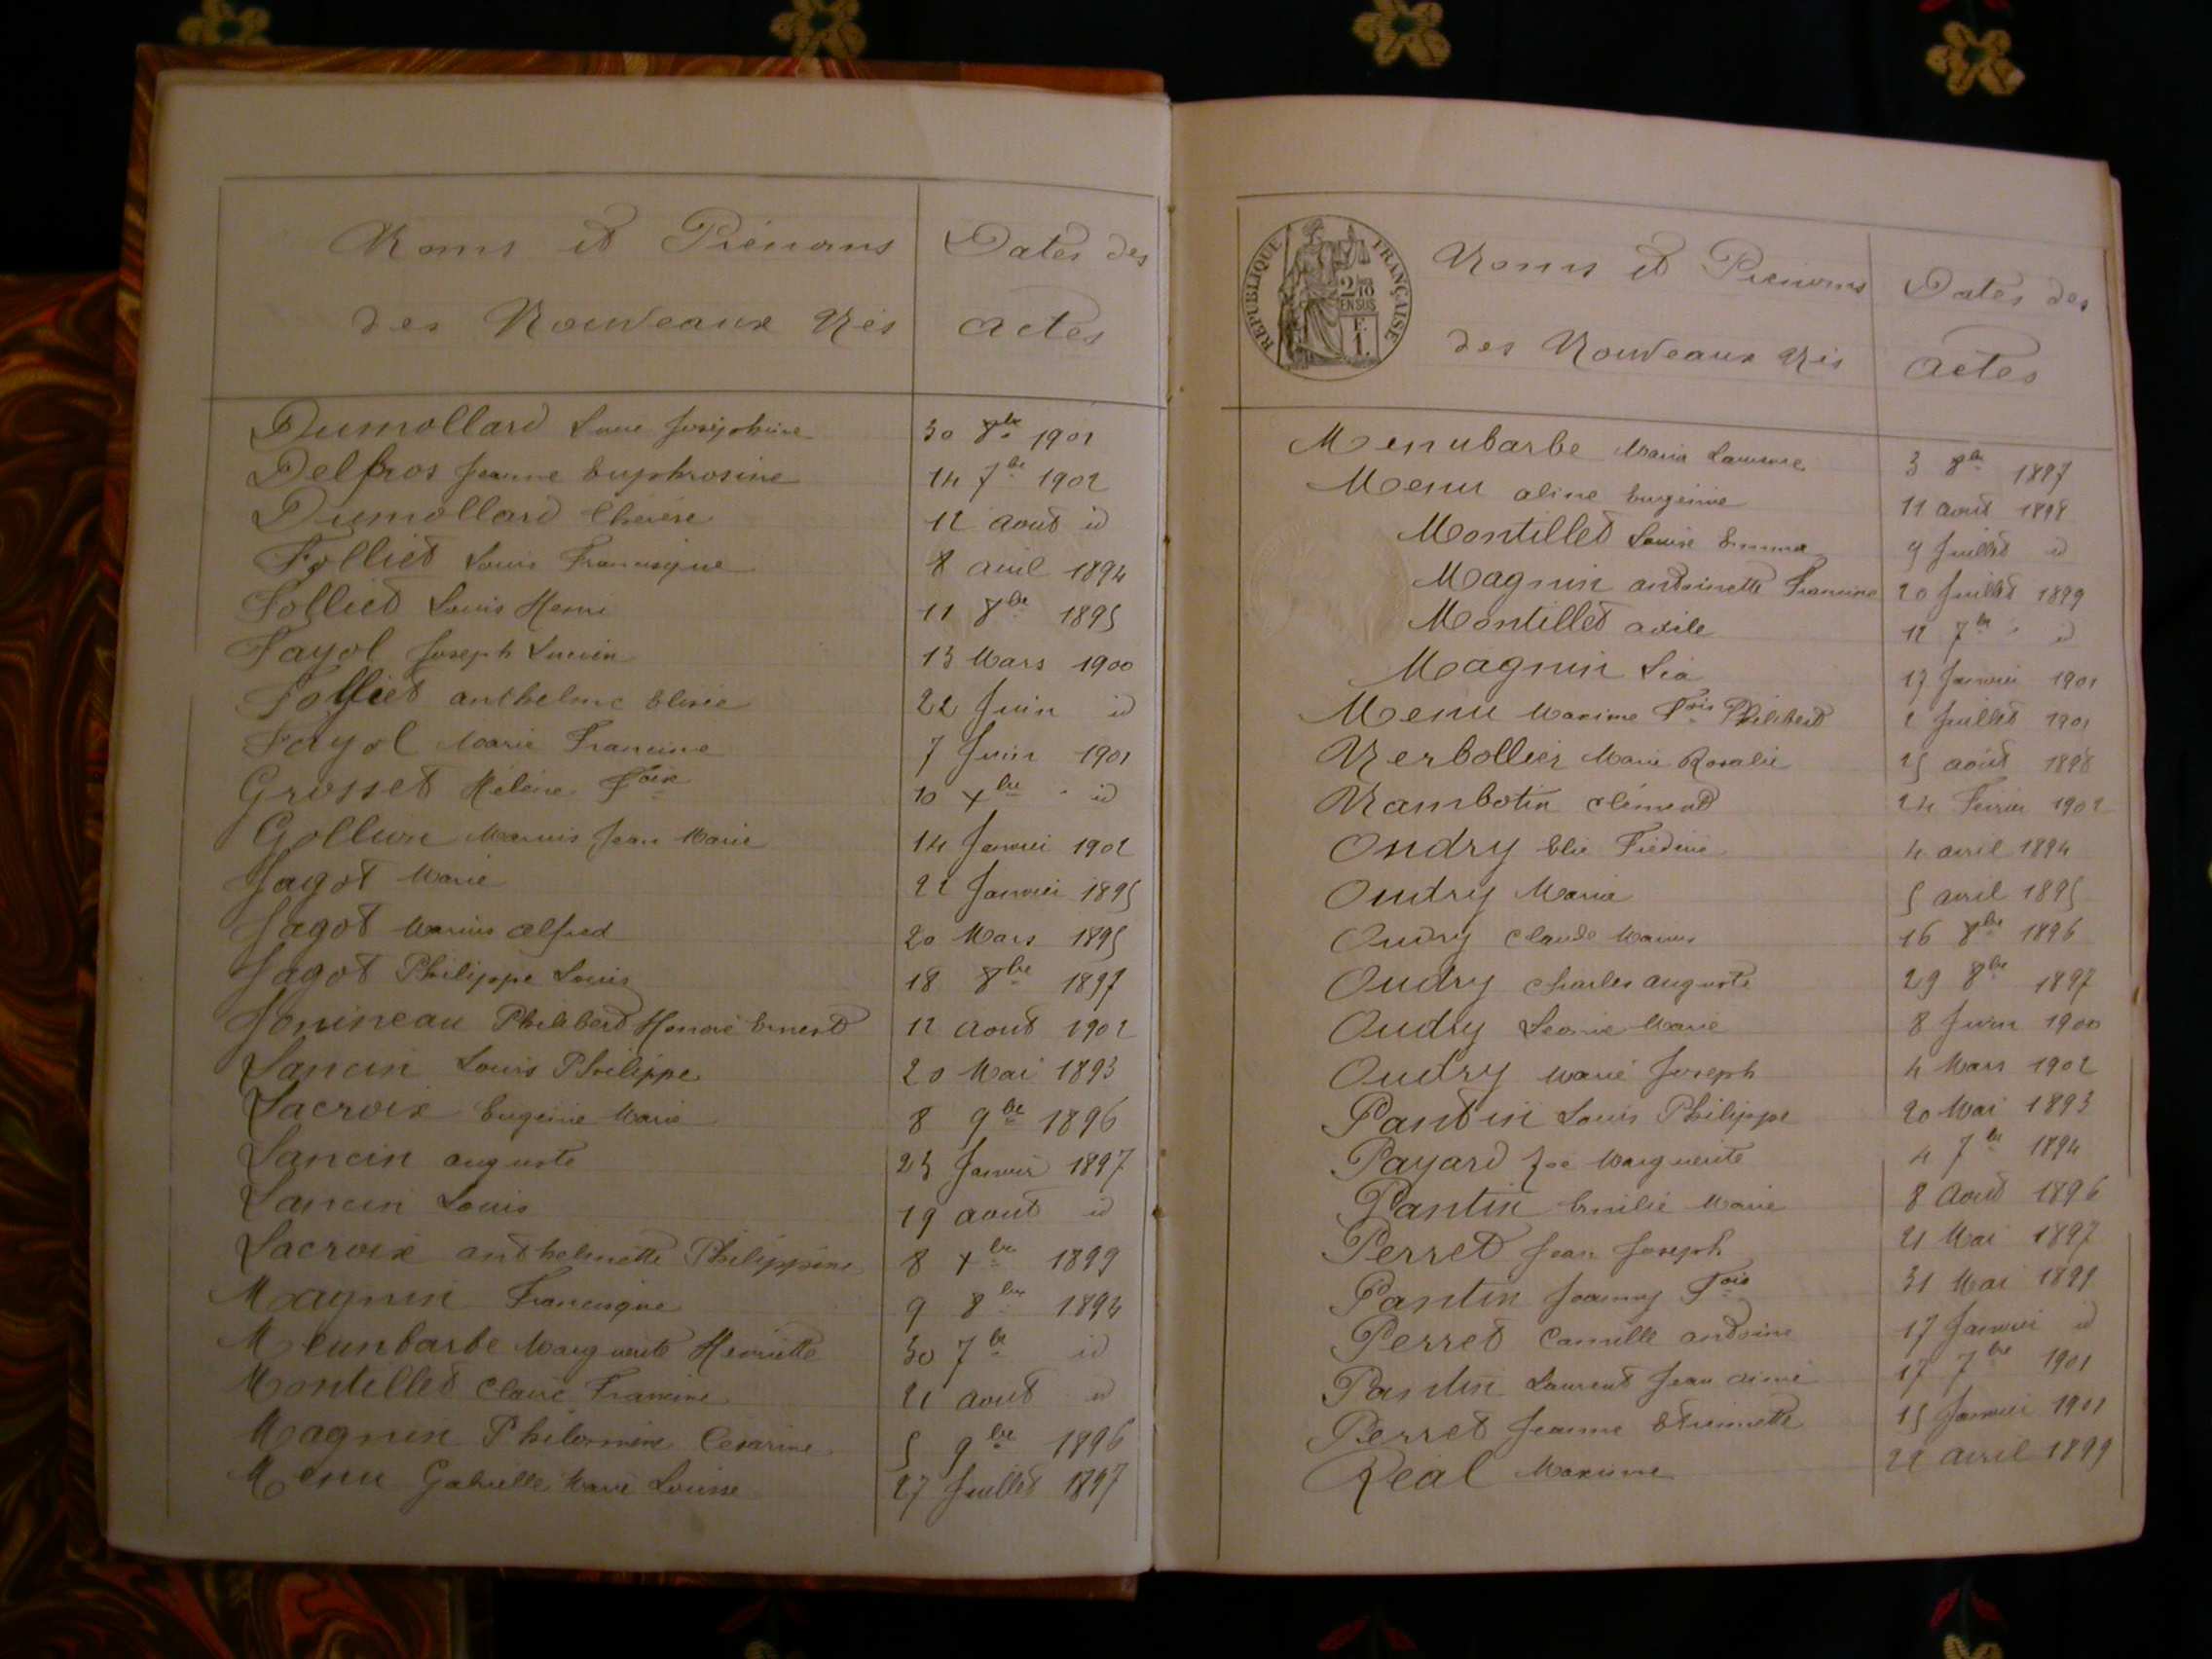 Noms et Prénoms
des Nouveaux Nés
Dates des
actes
Dumollard Joséphine 30 8bre 1901
Delbros Jeanne Euphrosine 14 7bre 1902
Dumollard Thérèse 12 aout id
Folliet Louis Francisque 8 avril 1894
Folliet Louis Henri 11 8bre 1895
Fayol Joseph Lucien 13 Mars 1900
Folliet anthelme Elisée 22 Juin id
Fayol Marie Francine 7 Juin 1901
Grosset Hélène Foix 10 Xbre id
Marius Jean Marie 14 Janvier 1902
Jagot Marie 22 Janvier 1895
Jagot Marius alfred 20 Mars 1895
Jagot Philippe Louis 18 8bre 1897
Jonineau Philibert Honoré Ernest 12 aout 1902
Lancin Louis Philippe 20 Mai 1893
Lacroix Eugénie Marie 8 9bre 1896
Lancin auguste 23 Janvier 1897
Lancin Louis 19 aout id
Lacroix anthelmette Philippine 8 Xbre 1899
Magnin Francisque 9 8bre 1894
Menubarbe Marguerite Henriette 30 7bre id
Montillet Claire Francine 21 aout id
Magnin Philomène Césarine 5 9bre 1896
Menu Gabrielle Marie Louise 27 Juillet 1897
REPUBLIQUE FRANÇAISE
2/10
EN SUS
F.
1.
Noms et Prénoms
des Nouveaux Nés
Dates des
actes
Menubarbe Maria Laurence 3 8bre 1897
Menu aline Eugénie 11 aout 1898
Montillet Louise Emma 9 Juillet id
Magnin antoinette Francine 20 Juillet 1899
Montillet adile 12 7bre id
Magnin Léa 17 Janvier 1901
Menu Maxime Fois Philibert 2 Juillet 1901
Nerbollier Marie Rosalie 25 aout 1898
Nambotin clément 24 Février 1902
Oudry Elie 4 avril 1894
Oudry Maria 5 avril 1895
Oudry Claude Marius 16 8bre 1896
Oudry Charles auguste 29 8bre 1897
Oudry Léonie Marie 8 Juin 1900
Oudry Marie Joseph 4 Mars 1902
Pantin Louis Philippe 20 Mai 1893
Payard Zoé Marguerite 4 7bre 1894
Pantin Emilie Marie 8 aout 1896
Perret Jean Joseph 21 Mai 1897
Pantin Joanny Fois 31 Mai 1899
Perret Camille antoine 17 Janvier id
Pantin Laurent Jean aimé 17 7bre 1901
Perret Jeanne Etiennette 15 Janvier 1901
Réal Maxime 22 avril 1899